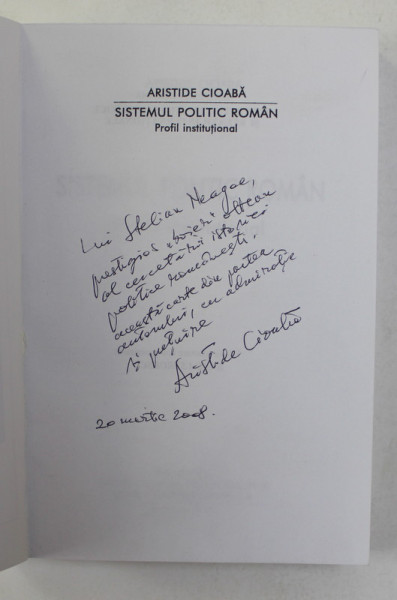 ARISTIDE CIOABĂ
SISTEMUL POLITIC ROMÂN
Profil instituțional
Lui Stelian Neagoe,
prestigios „boier” oltean
al cercetării istoriei
politice românești,
această carte din partea
autorului, cu admirație
și prețuire
Aristide Cioabă
20 martie 2008.